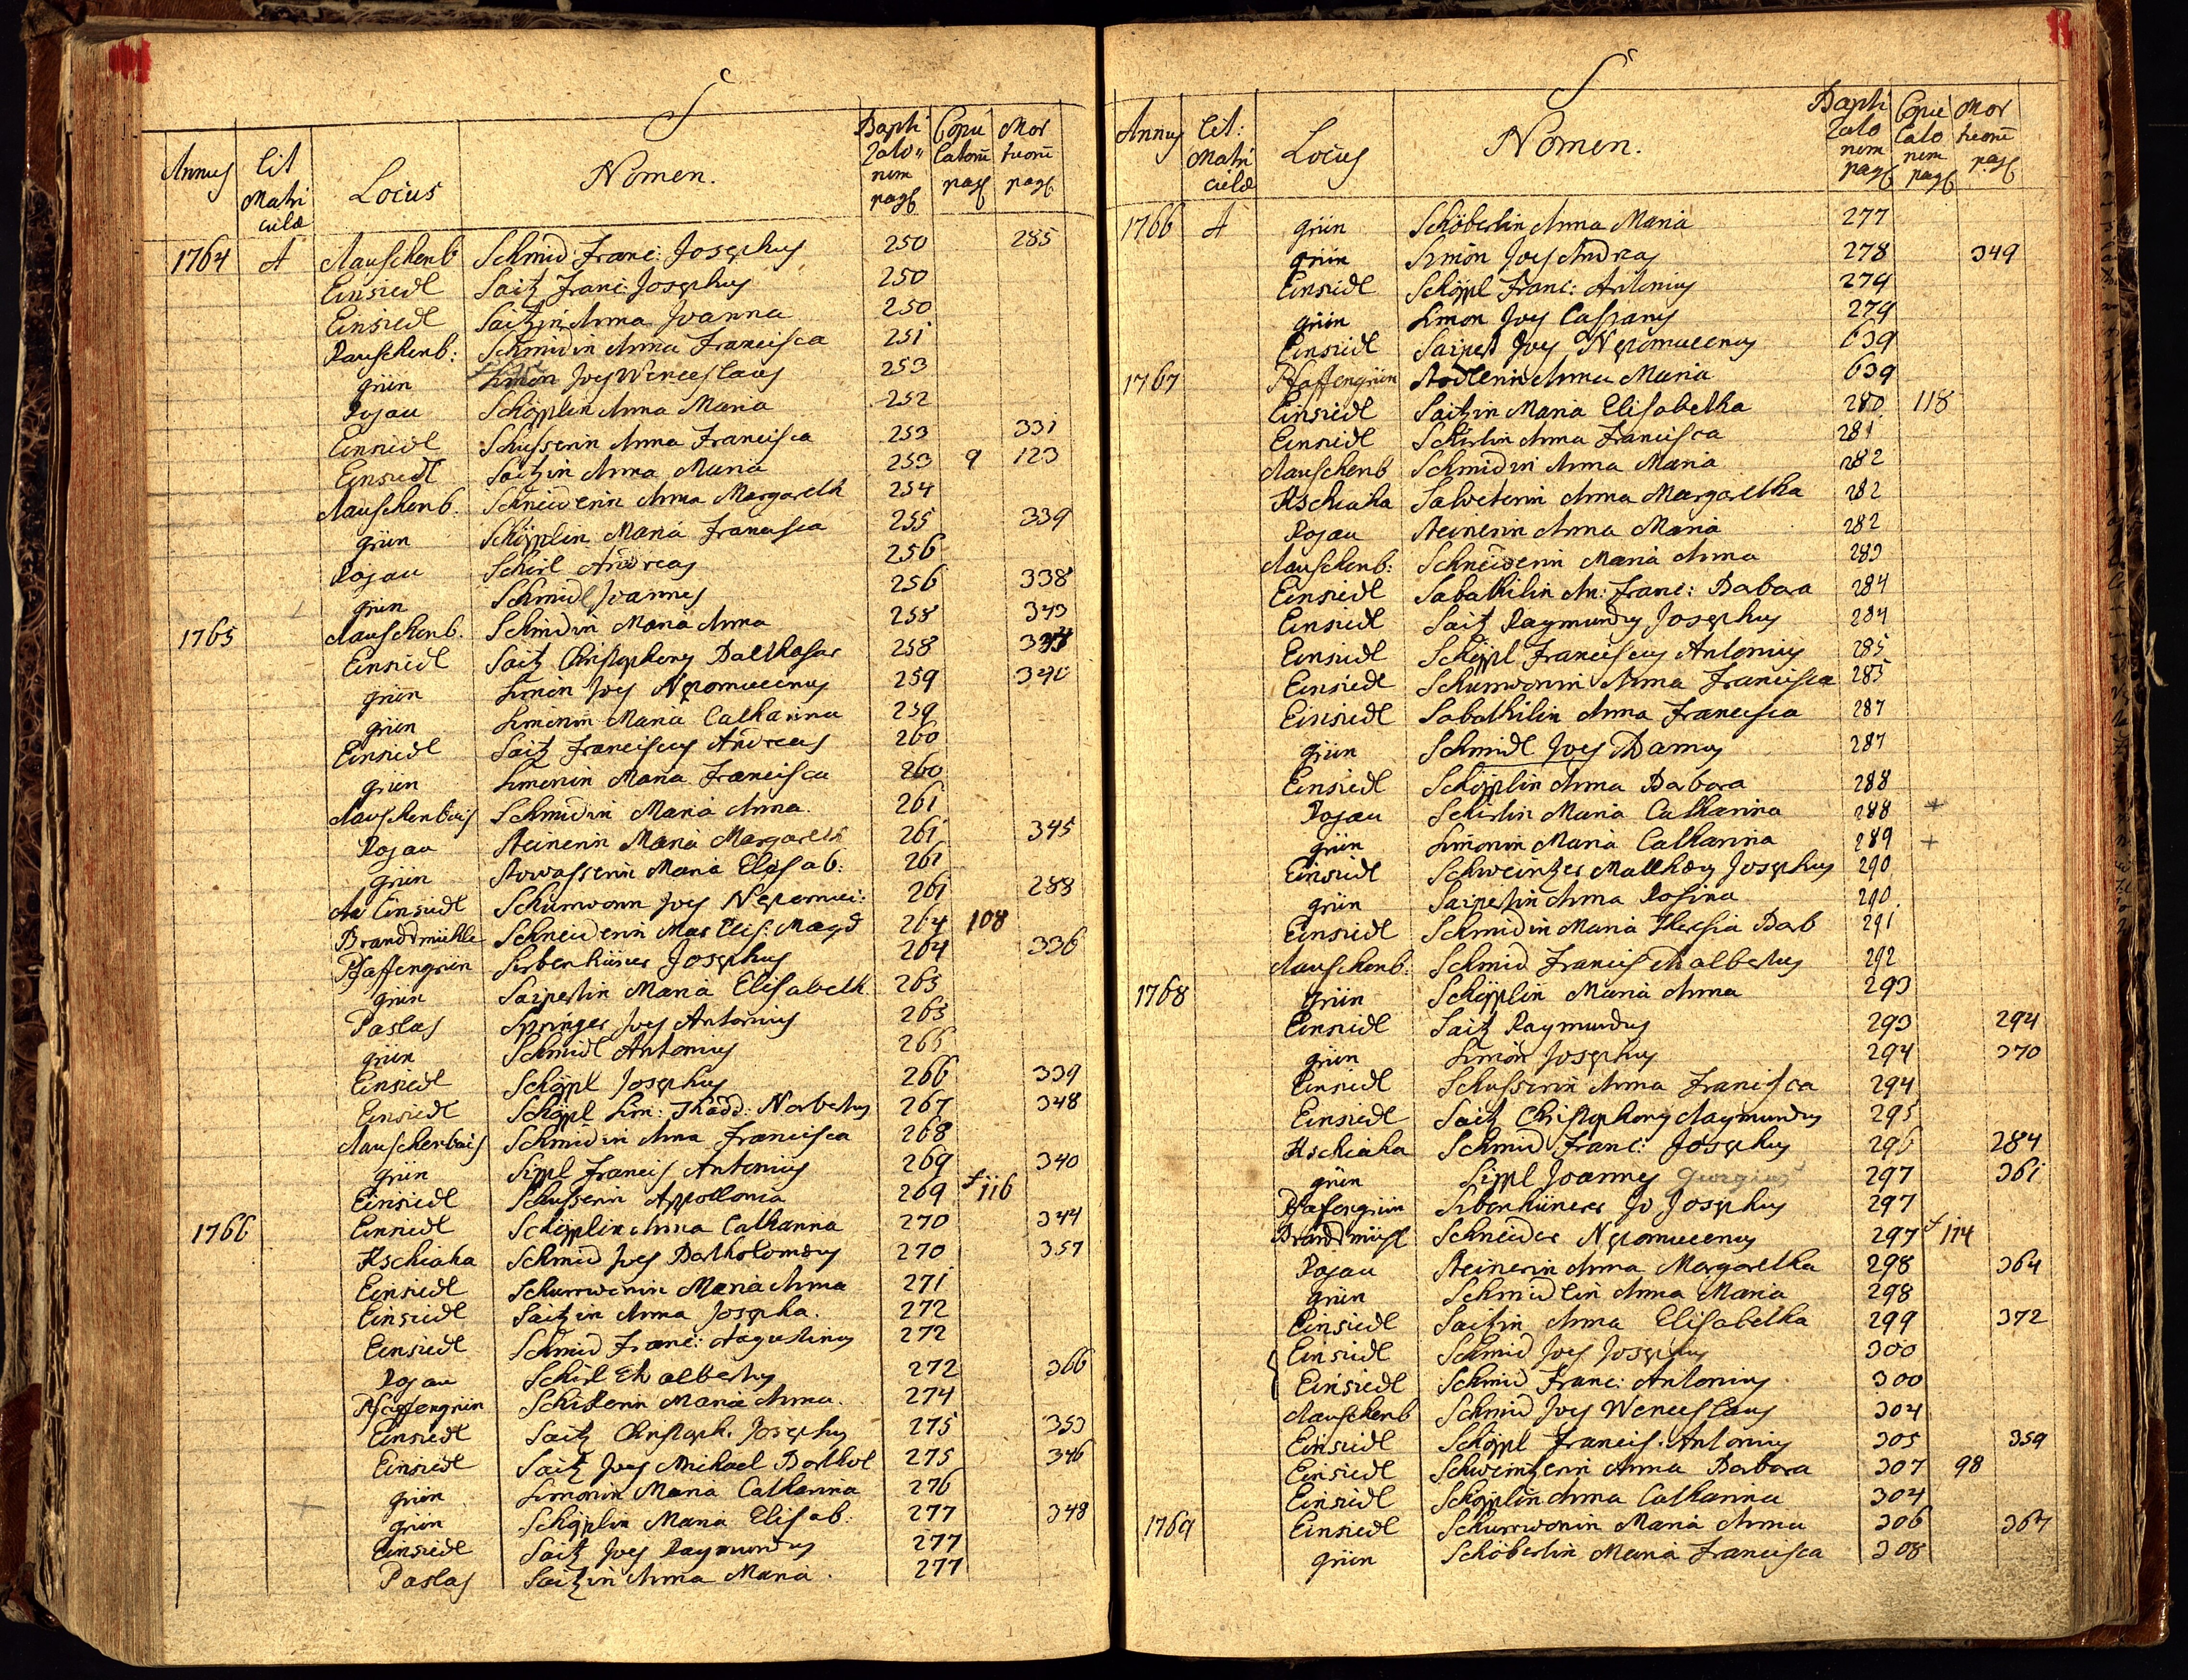 S
Annus Lit Matri culæ Locus Nomen. Bapti zato nem pag Copu latorū pag Mor tuorū pag
1764 A Rauschenb Schmid Franc: Josephus 250 285
Einsiedl Saitz Franc: Josephus 250
Einsiedl Saitzin Anna Joanna 250
Rauschenb: Schmidin Anna Francisca 251
grün Simon Joes Wenceslaus 253
Rojau Schöpplin Anna Maria 252
Einsiedl Schusserin Anna Francisca 253 331
Einsiedl Saitzin Anna Maria 253 9 123
Rauschenb. Schneiderin Anna Margareth 254
grün Schöpplin Maria Francisca 255 339
Rojau Schirl Andreas 256
grün Schmidl Joannes 256 338
1765 Rauschenb. Schmidin Maria Anna 258 343
Einsiedl Saitz Christophorus Balthasar 258
grün Simon Joes Nepomucenus 259 340
grün Simonin Maria Catharina 259
Einsiedl Saitz Franciscus Andreas 260
grün Simonin Maria Francisca 260
Rauschenbais Schmidin Maria Anna. 261
Rojau Steinerin Maria Margareth 261 345
grün Stowasserin Maria Elisab: 261
Einsiedl Schurwonn Joes Nepomuc: 261 288
Brandmühle Schneiderin Mar Elis: Magd 264 108
Pfaffengrün Sirbenhüner Josephus 264 336
grün Saipertin Maria Elisabeth 265
Paslas Springer Joes Antonius 265
grün Schmidl Antonius 266
Einsiedl Schöppl Josephus 266 339
Einsiedl Schöppl Sim: Thadd: Norbertus 267 348
Rauschenbais Schmidin Anna Francisca 268
grün Sippl Francis Antonius 269 340
Einsiedl Schusserin Appollonia 269 +116
1766 Einsiedl Schöpplin Anna Catharina 270 344
Kschiaha Schmid Joes Bartholomæus 270 357
Einsiedl Schurrwonin Maria Anna 271
Einsiedl Saitzin Anna Josepha. 272
Einsiedl Schmid Franc: Augustinus 272
Rojau Schirl Adalbertus 272 366
Pfaffengrün Maria Anna. 274
Einsiedl Saitz Christoph. Josephus 275 353
Einsiedl Saitz Joes Michael Barthol 275 346
grün Simonin Maria Catharina 276
grün Schöpplin Maria Elisab: 277 348
Einsiedl Saitz Joes Raymundus 277
Paslas Saitzin Anna Maria. 277
S
Annus Lit: Matri culæ Locus Nomen. Bapti zato nem pag Copu lato nem pag Mor tuorū pag
1766 A grün Schöberlin Anna Maria 277
grün Simon Joes Andreas 278 349
Einsiedl Schöppl Franc: Antonius 279
grün Simon Joes Casparus 279
Einsiedl Saipert Joes Nepomucenus 639
1767 Pfaffengrün Stodlerin Anna Maria 639
Einsiedl Saitzin Maria Elisabetha 280 118
Einsiedl Schirlin Anna Francisca 281
Rauschenb Schmidin Anna Maria 282
Kschiaha Salveterin Anna Margaretha 282
Rojau Steinerin Anna Maria 282
Rauschenb: Schneiderin Maria Anna 283
Einsiedl Sabathilin An: Franc: Barbara 284
Einsiedl Saitz Raymundus Josephus 284
Einsiedl Schöppl Franciscus Antonius 285
Einsiedl Schurrwonin Anna Francisca 285
Einsiedl Sabathilin Anna Francisca 287
grün Schmidl Joes 287
Einsiedl Schöpplin Anna Barbara 288
Rojau Schirlin Maria Catharina 288 +
grün Simonin Maria Catharina 289 +
Einsiedl Schweintzer Mathæus Josephus 290
grün Saipertin Anna Rosina 290
Einsiedl Schmidin Maria Theresia Barb 291
Rauschenb: Schmid Francis Adalbertus 292
1768 grün Schöpplin Maria Anna 293
Einsiedl Saitz Raymundus 293 294
grün Simon Josephus 294 370
Einsiedl Schusserin Anna Francisca 294
Einsiedl Saitz Christophorus Raymundus 295
Kschiaha Schmid Franc: Josephus 296 284
grün Sippl Joannes Georgius 297 361
Pfafengrün Sibenhünerer Jo Josephus 297
Brandmühl Schneider Nepomucenus 297 + 114
Rojau Steinerin Anna Margaretha 298 364
grün Schmidlin Anna Maria 298
Einsiedl Saitzin Anna Elisabetha 299 372
Einsiedl Schmid Joes Josephus 300
Einsiedl Schmid Franc: Antonius 300
Rauschenb Schmid Joes Wenceslaus 304
Einsiedl Schöppl Francis. Antonius 305 359
Einsiedl Schweintzerin Anna Barbara 307 98
Einsiedl Schöpplin Anna Catharina 304
1769 Einsiedl Schurrwonin Maria Anna 306 367
grün Schöberlin Maria Francisca 308